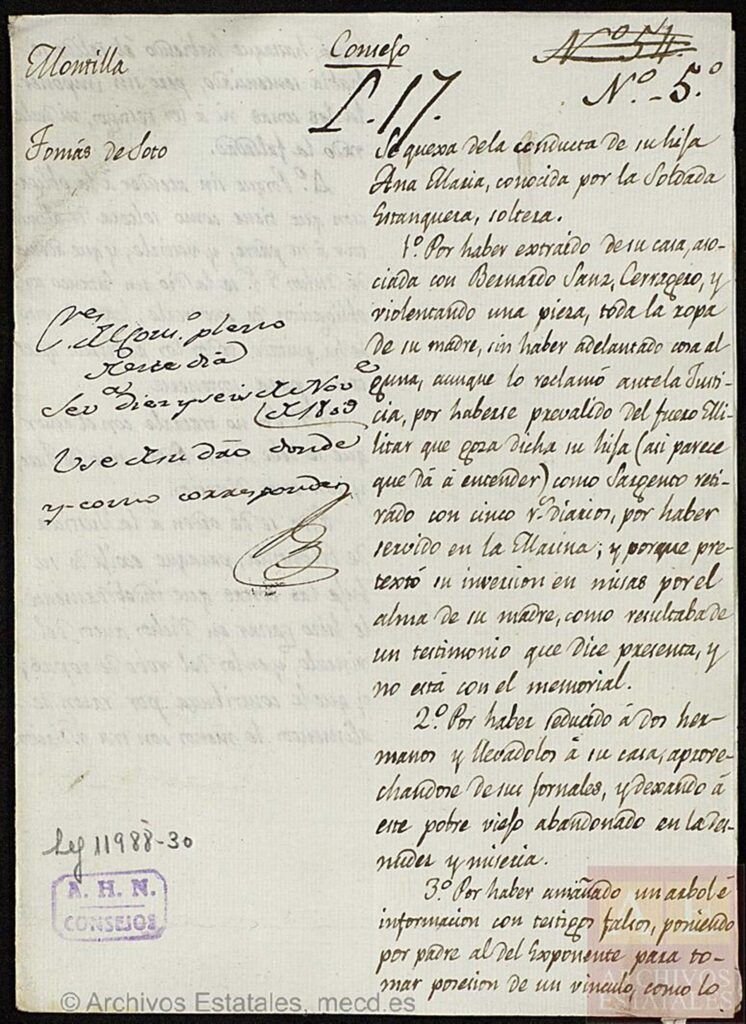 Montilla
Consejo
Nº 54.
Nº-5.º
L.17.
Tomás de Soto
Se quexa dela conducta de su hija
Ana Maria, conocida por la Soldada
Estanquera, soltera.
1º. Por haber extraido de su casa, aso
ciada con Bernardo Sanz, Cerragero, y
violentando una pieza, toda la ropa
de su madre, sin haber adelantado cosa al
guna, aunque lo reclamó antela Justi
cia, por haberse prevalido del fuero Mi
litar que goza dicha su hija (asi parece
que dá á entender) como Sargento reti
rado con cinco rs. diarios, por haber
servido en la Marina; y porque pre
textó su inversion en misas por el
alma de su madre, como resultaba de
un testimonio que dice presenta, y
no está con el memorial.
2º. Por haber seducido á dos her
manos y llevadolos á su casa, aprove
chandose de sus jornales, y dexando á
este pobre viejo abandonado en la des
nudez y miseria.
3º. Por haber amañado un arbol é
informacion con testigos falsos, poniendo
por padre al del Exponente para to
mar posesion de un vinculo, como lo
pleno
Sevª diez y seis de Nove
de 1809
Use de su dro donde
y como corresponde
Leg 11988-30
A. H. N.
CONSEJOS
ARCHIVOS
ESTATALES
© Archivos Estatales, mecd.es